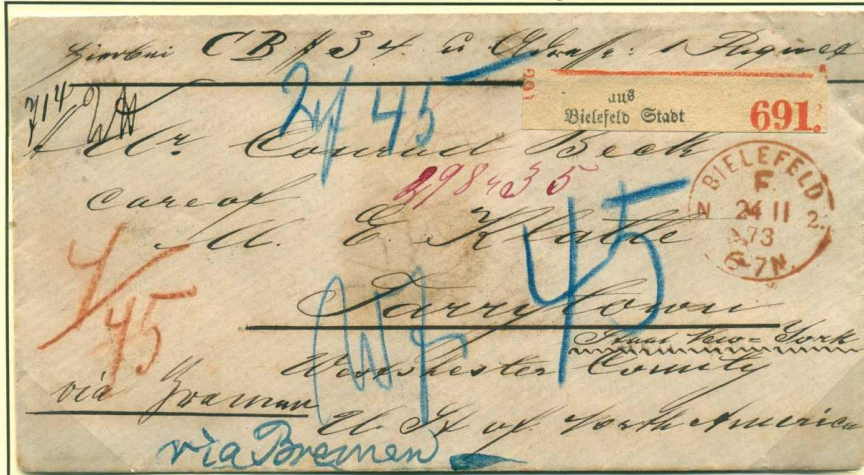 Hierbei CB # 34. u Adresse: 1 Paquet
714
2/ 45
aus
Bielefeld Stadt 691.
Mr. Conrad Beck
298 35
BIELEFELD
F.
24 11
73
6-7N.
care of
M. E. Klatte
45
Tarrytown
Staat New-York
4/45
Westchester County
via Bremen
U. St of North America
via Bremen